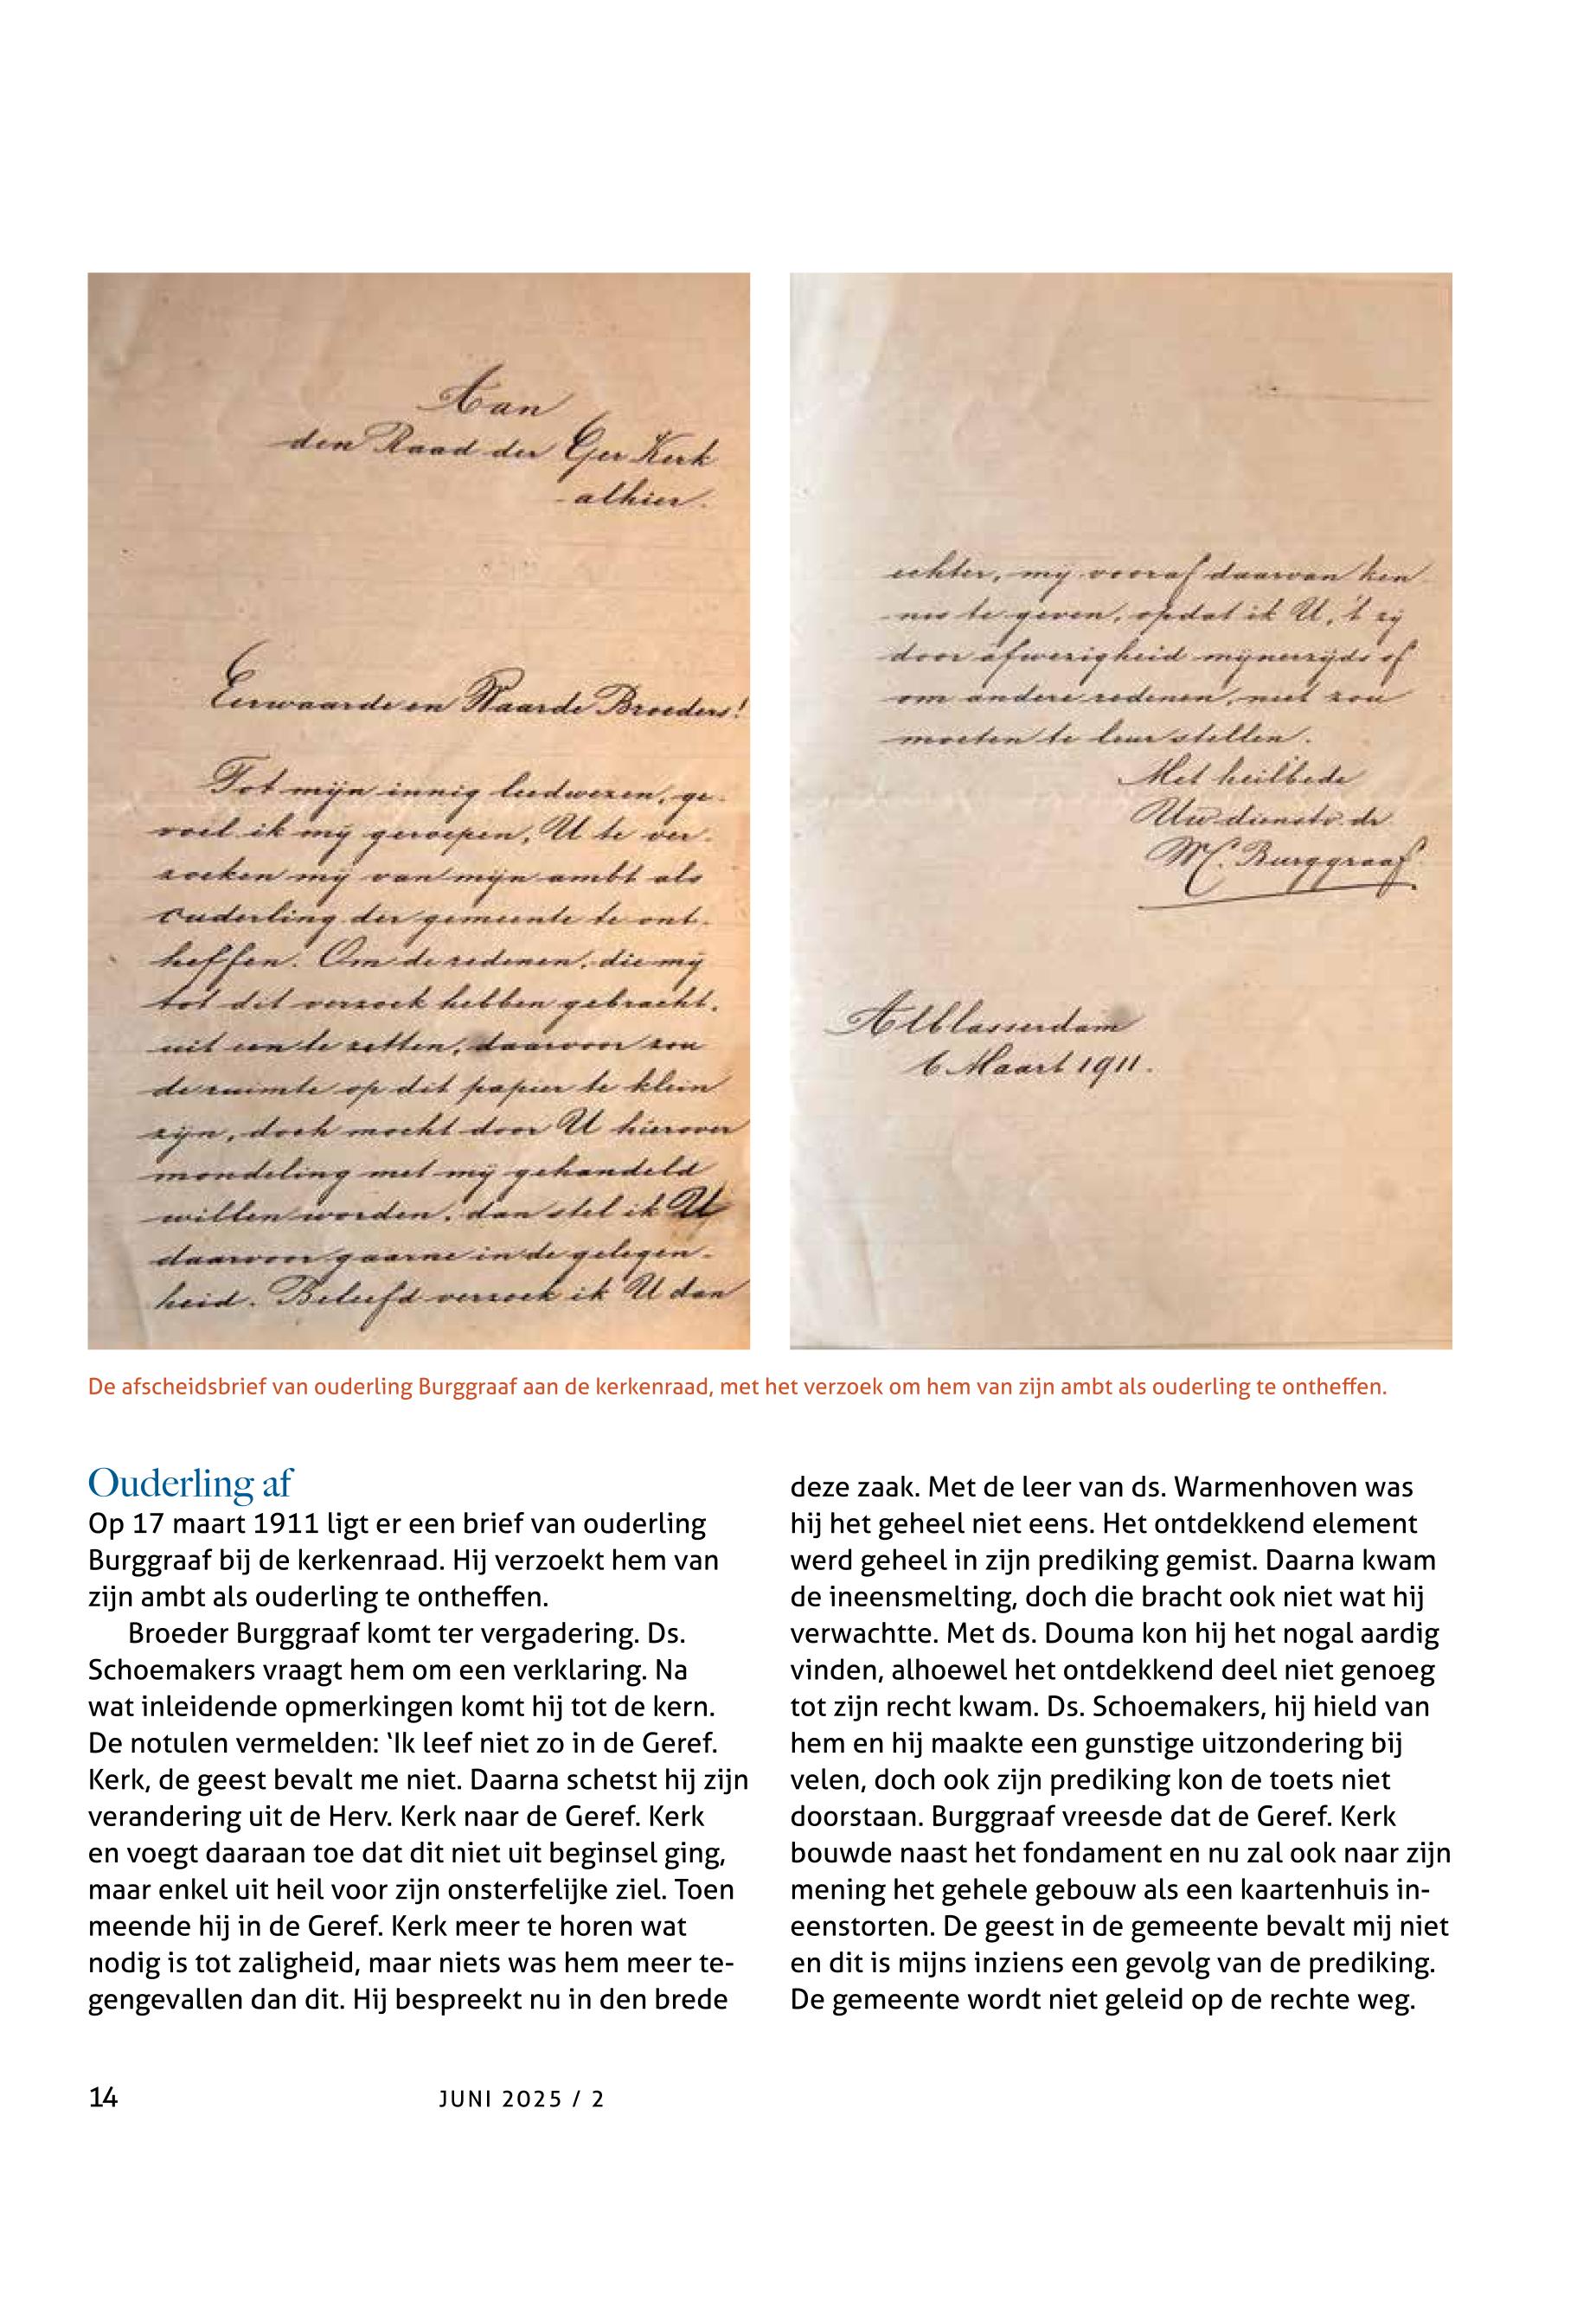 Aan
den Raad der Ger Kerk
alhier.
Eerwaarde en Waarde Broeders!
Tot mijn innig leedwezen, ge-
voel ik mij geroepen, U te ver-
zoeken mij van mijn ambt als
ouderling der gemeente te ont-
heffen. Om de redenen, die mij
tot dit verzoek hebben gebracht,
uit een te zetten, daarvoor zou
de ruimte op dit papier te klein
zijn, doch mocht door U hierover
mondeling met mij gehandeld
willen worden, dan stel ik U
daarvoor gaarne in de gelegen-
heid. Beleefd verzoek ik U dan
echter, mij vooraf daarvan ken
nis te geven, opdat ik U, 't zij
door afwezigheid mijnerzijds of
om andere redenen, niet zou
moeten te leur stellen.
Met heilbede
Uw dienstv. dr.
M C. Burggraaf
Alblasserdam
6 Maart 1911.
De afscheidsbrief van ouderling Burggraaf aan de kerkenraad, met het verzoek om hem van zijn ambt als ouderling te ontheffen.
Ouderling af
Op 17 maart 1911 ligt er een brief van ouderling
Burggraaf bij de kerkenraad. Hij verzoekt hem van
zijn ambt als ouderling te ontheffen.
Broeder Burggraaf komt ter vergadering. Ds.
Schoemakers vraagt hem om een verklaring. Na
wat inleidende opmerkingen komt hij tot de kern.
De notulen vermelden: ‘Ik leef niet zo in de Geref.
Kerk, de geest bevalt me niet. Daarna schetst hij zijn
verandering uit de Herv. Kerk naar de Geref. Kerk
en voegt daaraan toe dat dit niet uit beginsel ging,
maar enkel uit heil voor zijn onsterfelijke ziel. Toen
meende hij in de Geref. Kerk meer te horen wat
nodig is tot zaligheid, maar niets was hem meer te-
gengevallen dan dit. Hij bespreekt nu in den brede
deze zaak. Met de leer van ds. Warmenhoven was
hij het geheel niet eens. Het ontdekkend element
werd geheel in zijn prediking gemist. Daarna kwam
de ineensmelting, doch die bracht ook niet wat hij
verwachtte. Met ds. Douma kon hij het nogal aardig
vinden, alhoewel het ontdekkend deel niet genoeg
tot zijn recht kwam. Ds. Schoemakers, hij hield van
hem en hij maakte een gunstige uitzondering bij
velen, doch ook zijn prediking kon de toets niet
doorstaan. Burggraaf vreesde dat de Geref. Kerk
bouwde naast het fondament en nu zal ook naar zijn
mening het gehele gebouw als een kaartenhuis in-
eenstorten. De geest in de gemeente bevalt mij niet
en dit is mijns inziens een gevolg van de prediking.
De gemeente wordt niet geleid op de rechte weg.
14
JUNI 2025 / 2